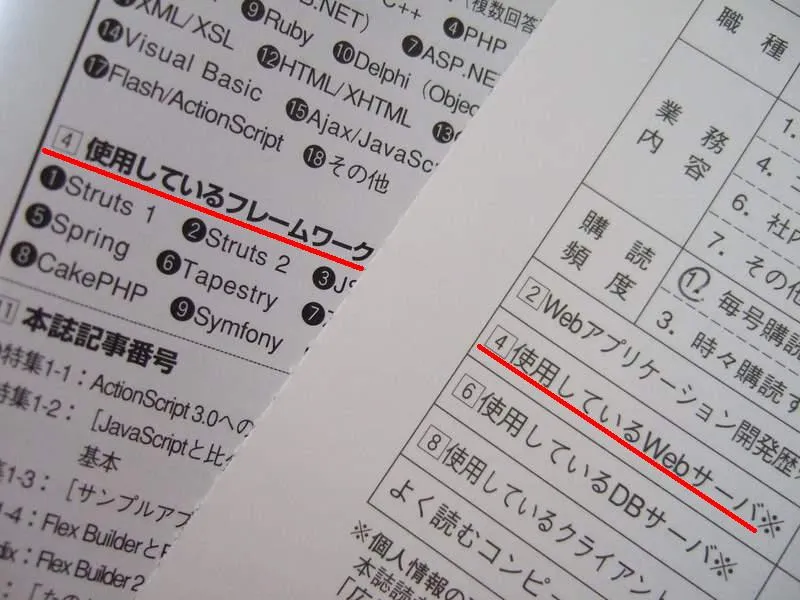 XML/XSL
⑨Ruby
④PHP
⑭Visual Basic
⑫HTML/XHTML
⑩Delphi
⑦ASP.NE
⑰Flash/ActionScript
⑮Ajax/JavaSc
⑬
⑱その他
4 使用しているフレームワーク
①Struts 1
②Struts 2
③JS
⑤Spring
⑥Tapestry
⑦
⑧CakePHP
⑨Symfony
11 本誌記事番号
特集1-1：ActionScript 3.0への
特集1-2：［JavaScriptと比べ
基本
1-3：［サンプルアプ
1-4：Flex BuilderとF
Flex Builder 2
職種
業務内容
1.
4.
6. 社内
7. その他
購読頻度
①. 毎号購読
3. 時々購読す
2 Webアプリケーション開発歴
4 使用しているWebサーバ※
6 使用しているDBサーバ※
8 使用しているクライアント
よく読むコンピュー
※個人情報の
本誌読
「広